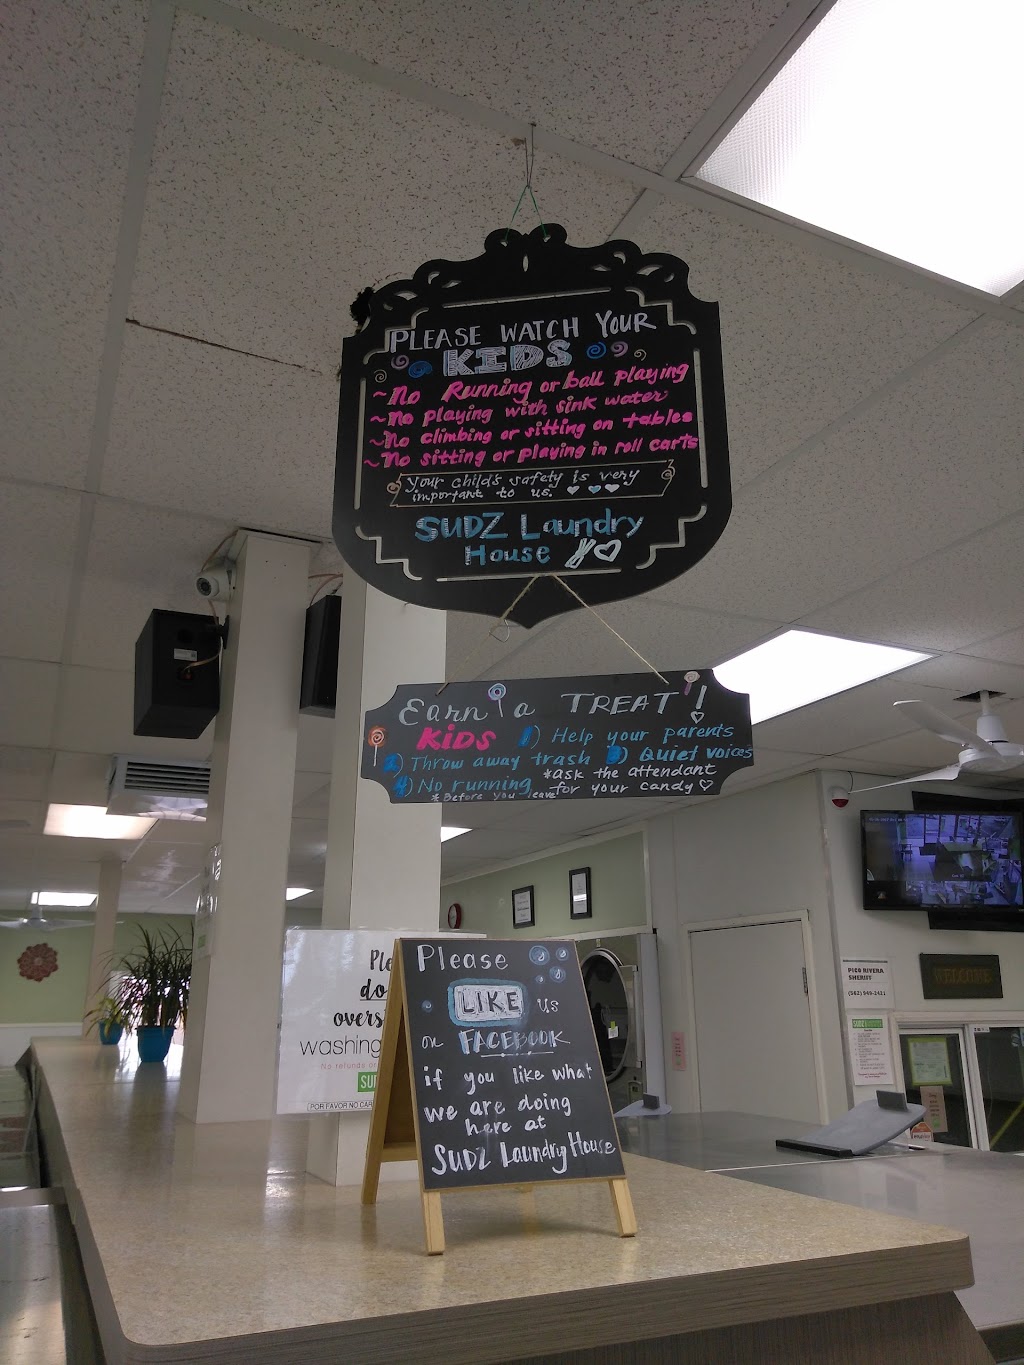 PLEASE WATCH YOUR
KIDS
~No Running or ball playing
~No playing with sink water
~No climbing or sitting on tables
~No sitting or playing in roll carts
Your child's safety is very
important to us.
SUDZ Laundry
House
Earn a TREAT!
KIDS 1) Help your parents
2) Throw away trash 3) Quiet voices
4) No running *ask the attendant
*Before you leave for your candy
Please
LIKE us
on FACEBOOK
if you like what
we are doing
here at
SUDZ Laundry House
do
overs
washing
No refunds or
SU
POR FAVOR NO CAR
PICO RIVERA
SHERIFF
(562) 949-2421
WELCOME